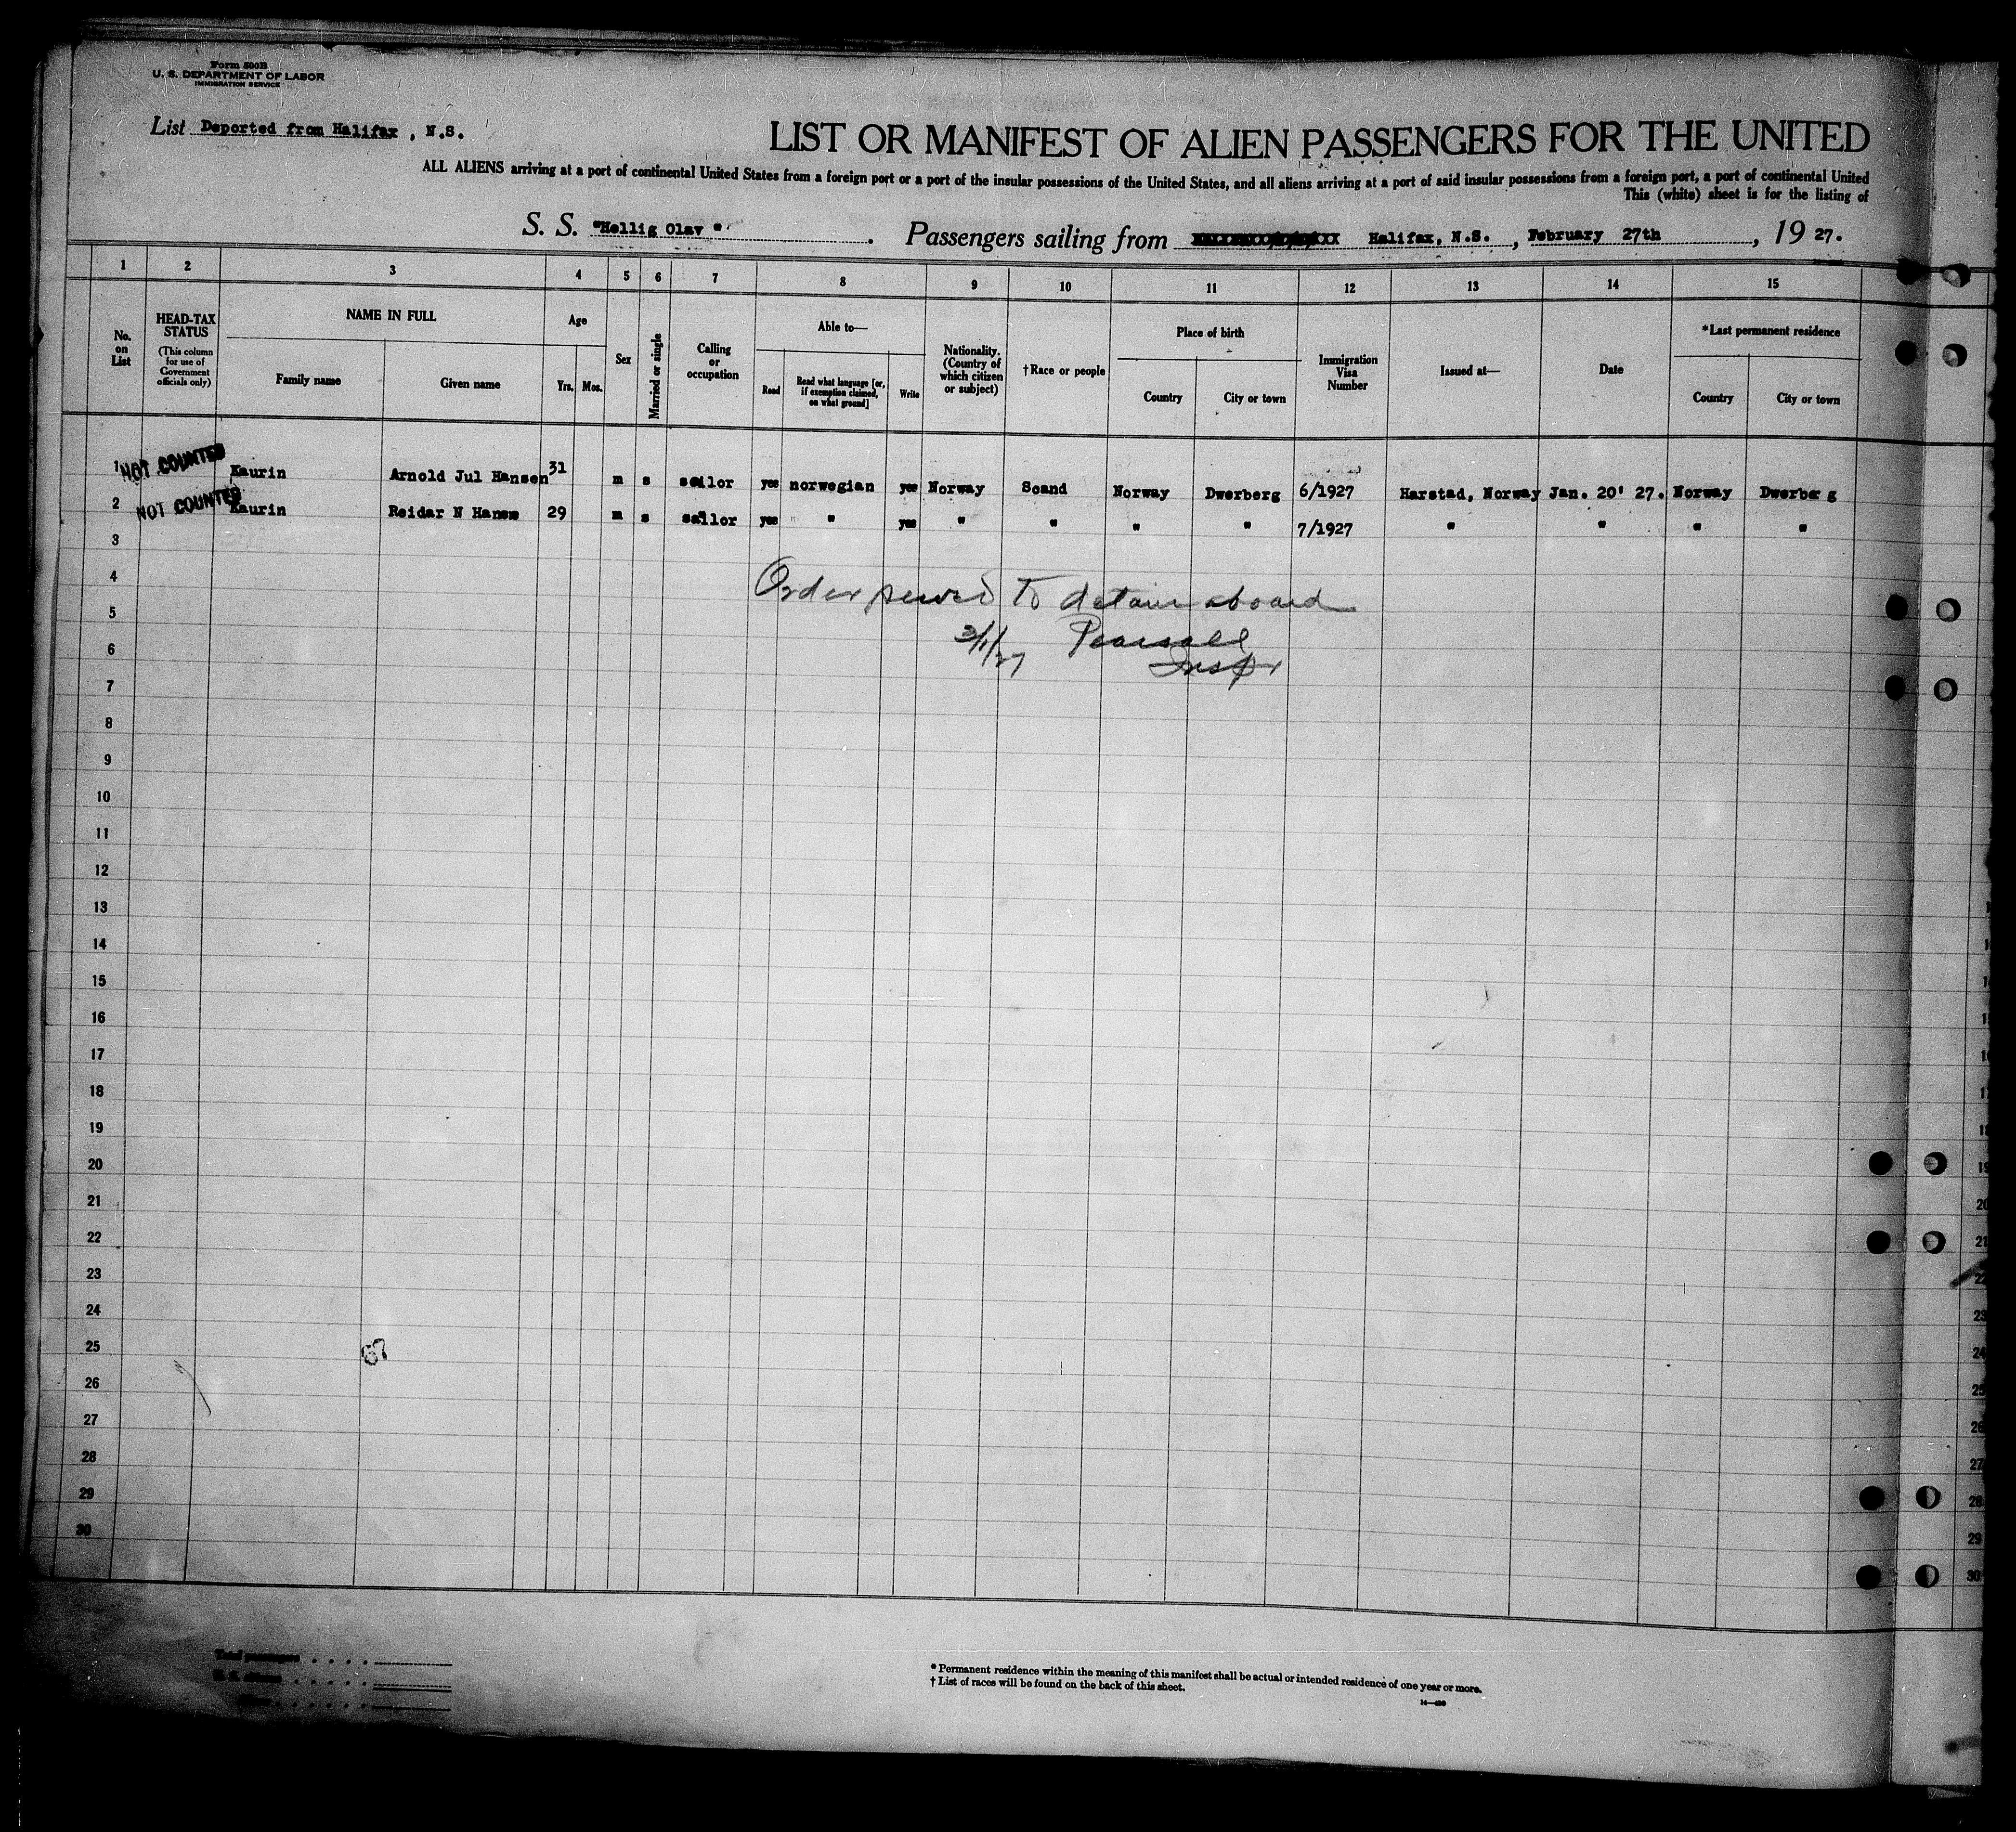 Form 500B
U. S. DEPARTMENT OF LABOR
IMMIGRATION SERVICE
List Deported from Halifax , N.S.
LIST OR MANIFEST OF ALIEN PASSENGERS FOR THE UNITED
ALL ALIENS arriving at a port of continental United States from a foreign port or a port of the insular possessions of the United States, and all aliens arriving at a port of said insular possessions from a foreign port, a port of continental United
This (white) sheet is for the listing of
S. S. "Hellig Olav " . Passengers sailing from Halifax, N.S. , February 27th , 19 27.
1 2 3 4 5 6 7 8 9 10 11 12 13 14 15
No. on List
HEAD-TAX STATUS
(This column for use of Government officials only)
NAME IN FULL
Family name
Given name
Age
Yrs. Mos.
Sex
Married or single
Calling or occupation
Able to—
Read
Read what language [or, if exemption claimed, on what ground]
Write
Nationality. (Country of which citizen or subject)
†Race or people
Place of birth
Country
City or town
Immigration Visa Number
Issued at—
Date
*Last permanent residence
Country
City or town
1 NOT COUNTED Kaurin Arnold Jul Hansen 31 m s sailor yes norwegian yes Norway Scand Norway Dwerberg 6/1927 Harstad, Norway Jan. 20' 27. Norway Dwerberg
2 NOT COUNTED Kaurin Reidar N Hansn 29 m s sailor yes " yes " " " " 7/1927 " " " "
3
4
Order served to detain aboard
5
2/1/27 Pearsall
6
Inspr
7
8
9
10
11
12
13
14
15
16
17
18
19
20
21
22
23
24
25
26
27
28
29
30
Total passengers
* Permanent residence within the meaning of this manifest shall be actual or intended residence of one year or more.
† List of races will be found on the back of this sheet.